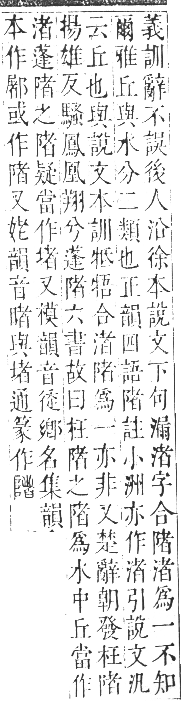 義訓辭不誤後人沿徐本說文下句漏渚字合陼渚爲一不知
爾雅丘與水分二類也正韻四語陼註小洲亦作渚引說文汎
云丘也與說文本訓牴牾合渚陼爲一亦非又楚辭朝發枉陼
揚雄反騷鳳凰翔兮蓬陼六書故曰枉陼之陼爲水中丘當作
渚蓬陼之陼疑當作堵又模韻音徒鄉名集韻
本作䣝或作陼又姥韻音睹與堵通篆作䧫